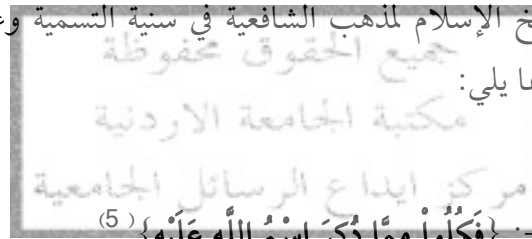 خ الإسلام لمذهب الشافعية في سنية التسمية وع
جميع الحقوق محفوظة
ا يلي:
مكتبة الجامعة الاردنية
مركز ايداع الرسائل الجامعية
{فَكُلُواْ مِمَّا ذُكِرَ اسْمُ اللَّهِ عَلَيْهِ} (5)